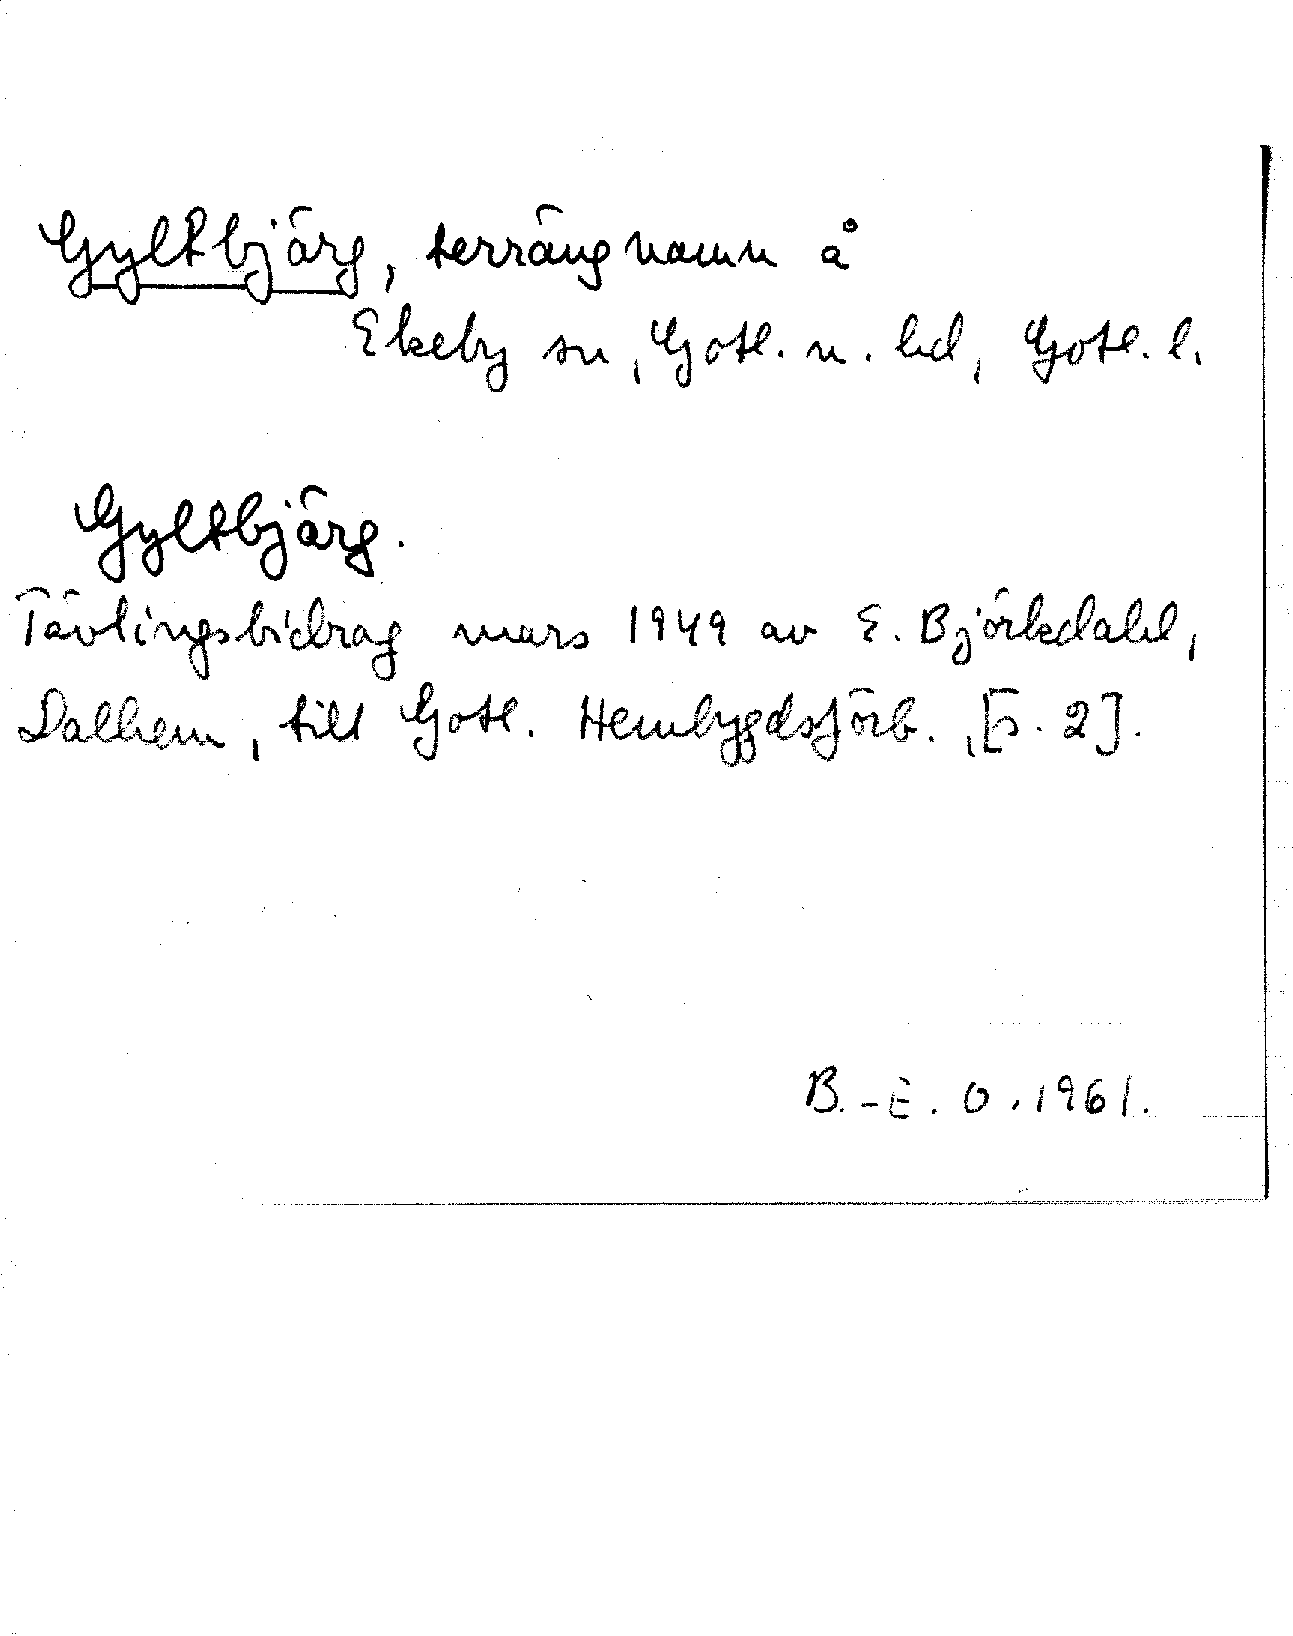 Gyltbjärg, terrängnamn å
Ekeby sn, Gotl. n. hd, Gotl. l.
Gyltbjärg.
Tävlingsbidrag mars 1949 av E. Björkdahl,
Dalhem, till Gotl. Hembygdsförb., [s. 2].
B.-E. O. 1961.